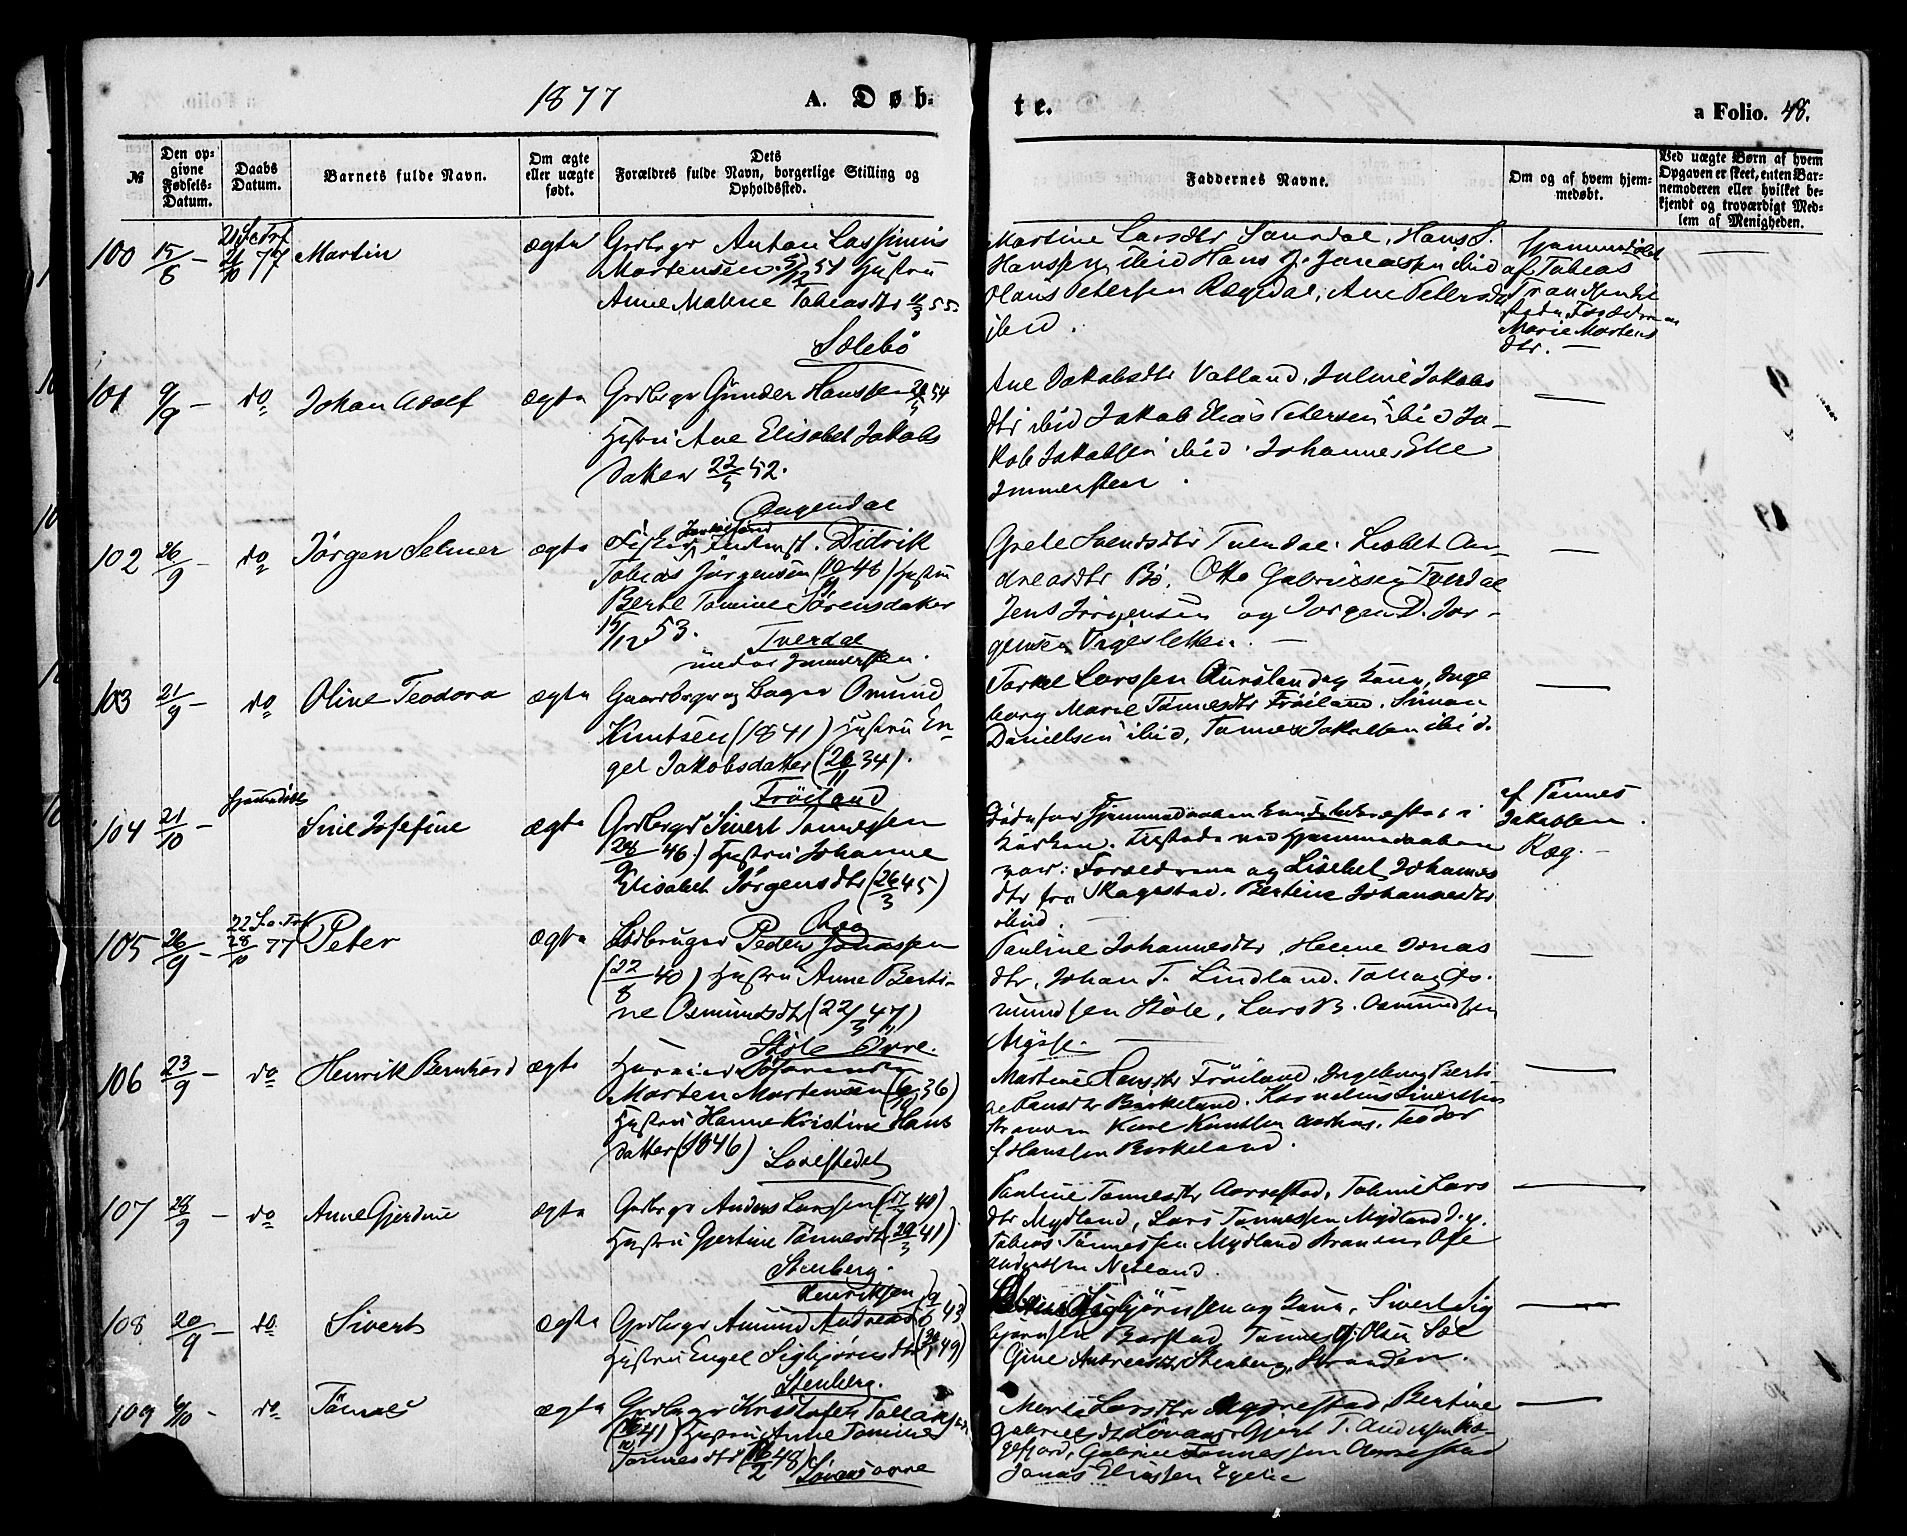 1877 A. Døb-
te. a Folio. 48.
№
Den op-
givne
Fødsels-
Datum.
Daabs
Datum.
Barnets fulde Navn.
Om ægte
eller uægte
født.
Dets
Forældres fulde Navn, borgerlige Stilling og
Opholdssted.
Faddernes Navne.
Om og af hvem hjem-
medøbt.
Ved uægte Børn af hvem
Opgaven er skeet, enten Bar-
nemoderen eller hvilket be-
kjendt og troværdigt Med-
lem af Menigheden.
100 15/6 21 S e Trf 21/10 77 Martin ægte Grdbrgr Anton Lassinius
Mortensen 51 Hustru
Anne Malene Tobiasdtr 55
Sælebø
Martine Larsdtr Sandal, Hans S.
Hanssen ibid Hans J. Jonassen ibid
Olaus Petersen Rægedal, Ane Petersdtr
ibid.
Hjemmedøbt
af Tobias
Marie Mortens
dtr. —
101 9/9 — do Johan Adolf ægte Grdbrgr Gunder Hanssen 54
Hustru Ane Elisabet Jakobs
datter 22/5 52.
Aagendal
Ane Jakobsdtr Vatland, Juline Jakobs
dtr ibid Jakob Elias Petersen ibid Ja-
kob Jakobsen ibid. Johannes Elle
Immerstein.
102 26/9 — do Jørgen Selmer ægte Fisker Indenst. Didrik
Tobias Jørgensen (48) Hustru
Berte Tomine Sørensdatter
15/12 53.
Tverdal
under Immersten.
Grete Svendsdtr Tverdal. Lisbet An-
dreasdtr Bø. Otto Gabrielsen Tverdal
Jens Jørgensen og Jørgen D. Jør-
gensen Vigesletten. —
103 21/9 — do Oline Teodora ægte Gaardbrgr og Bager Omund
Knutsen (1841) Hustru En-
gel Jakobsdatter (26/11 34).
Frøiland
Tarkel Larssen Aursland og Kone, Inge
borg Marie Tønnesdtr Frøiland. Simon
Danielsen ibid, Tønnes Jakobsen ibid.
104 21/10 — Hjemmedøbt Sine Josefine ægte Grdbrgr Sivert Tønnessen
(28/9 46) Hustru Johanne
Elisabet Jørgensdtr (26/3 45)
Ræg
Døde før Hjemmedaaben kunde bekræftes i
Kirken. Tilstede ved Hjemmedaaben
var: Forældrene og Lisebet Johannes
dtr fra Skagestad. Bertine Johannesdtr
ibid.
af Tønnes
Jakobsen
Ræg. —
105 26/9 — 22 S. e. Trf 28/10 77 Peter ægte Grdbruger Peder Jonassen
(22/8 40) Hustru Anne Berti-
ne Osmundsdtr (22/3 47)
Støle Øvre.
Pauline Johannesdtr, Helene Jonas
dtr, Johan T. Lindland. Tollag Os-
mundsen Støle, Lars B. Osmundsen
Mysse.
106 23/9 — do Henrik Bernhard ægte
Morten Mortensen (36)
Hustru Hanne Kristine Hans
datter (1846)
Martine Hansdtr Frøiland, Ingeborg Berti
ne Hansdtr Birkeland. Kornelius Sivertsen
Karl Knutsen Aarhus, Teodor
Hanssen Birkeland.
107 24/9 — do Anne Gjerdine ægte Grdbrgr Anders Larssen (40)
Hustru Gjertine Tønnesdtr (29/3 41)
Stenberg.
Pauline Tønnesdtr Aarrestad, Tomine Lars
dtr Mydland, Lars Tønnessen Mydland d.y.
Tobias Tønnessen Mydland
Andersen Netland.
108 20/9 — do Sivert ægte Grdbrgr Amund Andreas Henriksen (9/6 43)
Hustru Engel Sigbjørnsdtr (49)
Stenberg.
Sigbjørnsen og Kone, Sivert Sig
bjørnsen Barstad, Tønnes G. Olsen Sæl
Gine Andreasdtr Stenberg, Stranden.
109 6/10 — do Tønnes ægte Grdbrgr Kristofer Tollaksen
(41) Hustru Anne Tomine
Tønnesdtr (16/2 48)
Marte Larsdtr Aarrestad, Bertine
Gabrielsdtr Gjert T. Andersen
Gabriel Tønnessen Aarrestad
Jonas Eliassen Egelie